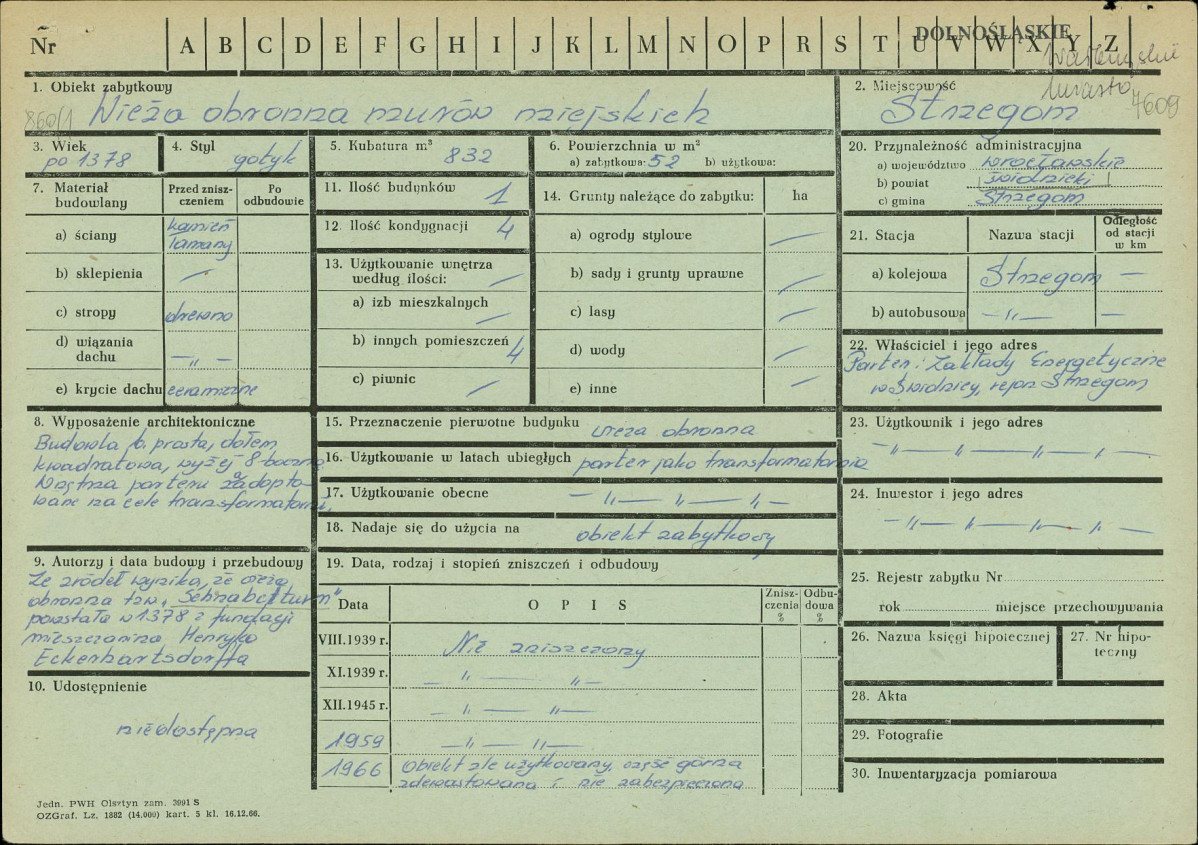 DOLNOŚLĄSKIE
Nr A B C D E F G H I J K L M N O P R S T U V W X Y Z
miasto
1. Obiekt zabytkowy
860/1 Wieża obronna murów miejskich
2. Miejscowość
4609
Strzegom
3. Wiek
po 1378
4. Styl
gotyk
5. Kubatura m³
832
6. Powierzchnia w m²
a) zabytkowa: 52 b) użytkowa:
7. Materiał budowlany
Przed zniszczeniem
Po odbudowie
a) ściany
kamień
łamany
b) sklepienia —
c) stropy drewno
d) wiązania dachu — „ —
e) krycie dachu ceramiczne
11. Ilość budynków 1
12. Ilość kondygnacji 4
13. Użytkowanie wnętrza
według ilości: —
a) izb mieszkalnych —
b) innych pomieszczeń 4
c) piwnic —
14. Grunty należące do zabytku: ha
a) ogrody stylowe —
b) sady i grunty uprawne —
c) lasy —
d) wody —
e) inne —
20. Przynależność administracyjna
a) województwo wrocławskie
b) powiat świdnicki
c) gmina Strzegom
21. Stacja
Nazwa stacji
Odległość
od stacji
w km
a) kolejowa Strzegom —
b) autobusowa — „ — —
22. Właściciel i jego adres
Parter: Zakłady Energetyczne
w Świdnicy, rejon Strzegom
8. Wyposażenie architektoniczne
Budowla b. prosta, dołem
kwadratowa, wyżej 8-boczna.
Wnętrza parteru zaadopto-
wane na cele transformatorni.
15. Przeznaczenie pierwotne budynku wieża obronna
16. Użytkowanie w latach ubiegłych parter jako transformatornia
17. Użytkowanie obecne — „ — „ — „ —
18. Nadaje się do użycia na obiekt zabytkowy
23. Użytkownik i jego adres
— „ — „ — „ — „ —
24. Inwestor i jego adres
— „ — „ — „ — „ —
9. Autorzy i data budowy i przebudowy
Ze źródeł wynika, że wieża
obronna tzw.
powstała w 1378 z fundacji
mieszczanina Henryka
Eckenhartsdorffa
10. Udostępnienie
niedostępna
19. Data, rodzaj i stopień zniszczeń i odbudowy
Data
O P I S
Zniszczenia %
Odbudowa %
VIII.1939 r. Nie zniszczony
XI.1939 r. — „ — „ —
XII.1945 r. — „ — „ —
1959 — „ — „ —
1966 Obiekt źle użytkowany, część górna
zdewastowana i nie zabezpieczona
25. Rejestr zabytku Nr
rok miejsce przechowywania
26. Nazwa księgi hipotecznej
27. Nr hipo-
teczny
28. Akta
29. Fotografie
30. Inwentaryzacja pomiarowa
Jedn. PWH Olsztyn zam. 3991 S
OZGraf. Lz. 1882 (14.000) kart. 5 kl. 16.12.66.